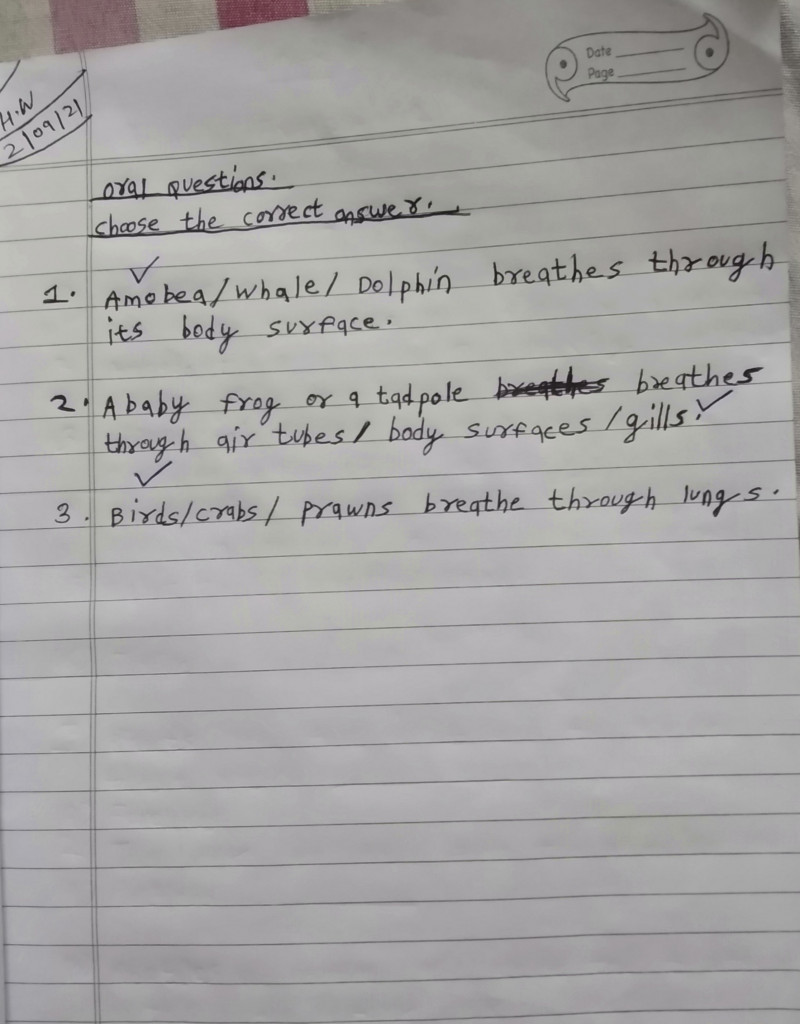 Date
Page
H.W
2/09/21
oral questions.
choose the correct answer.
✓
1. Amobea/whale/ Dolphin breathes through
its body surface.
2. A baby frog or a tadpole breathes breathes
through air tubes/ body surfaces/gills. ✓
✓
3. Birds/crabs/ prawns breathe through lungs.